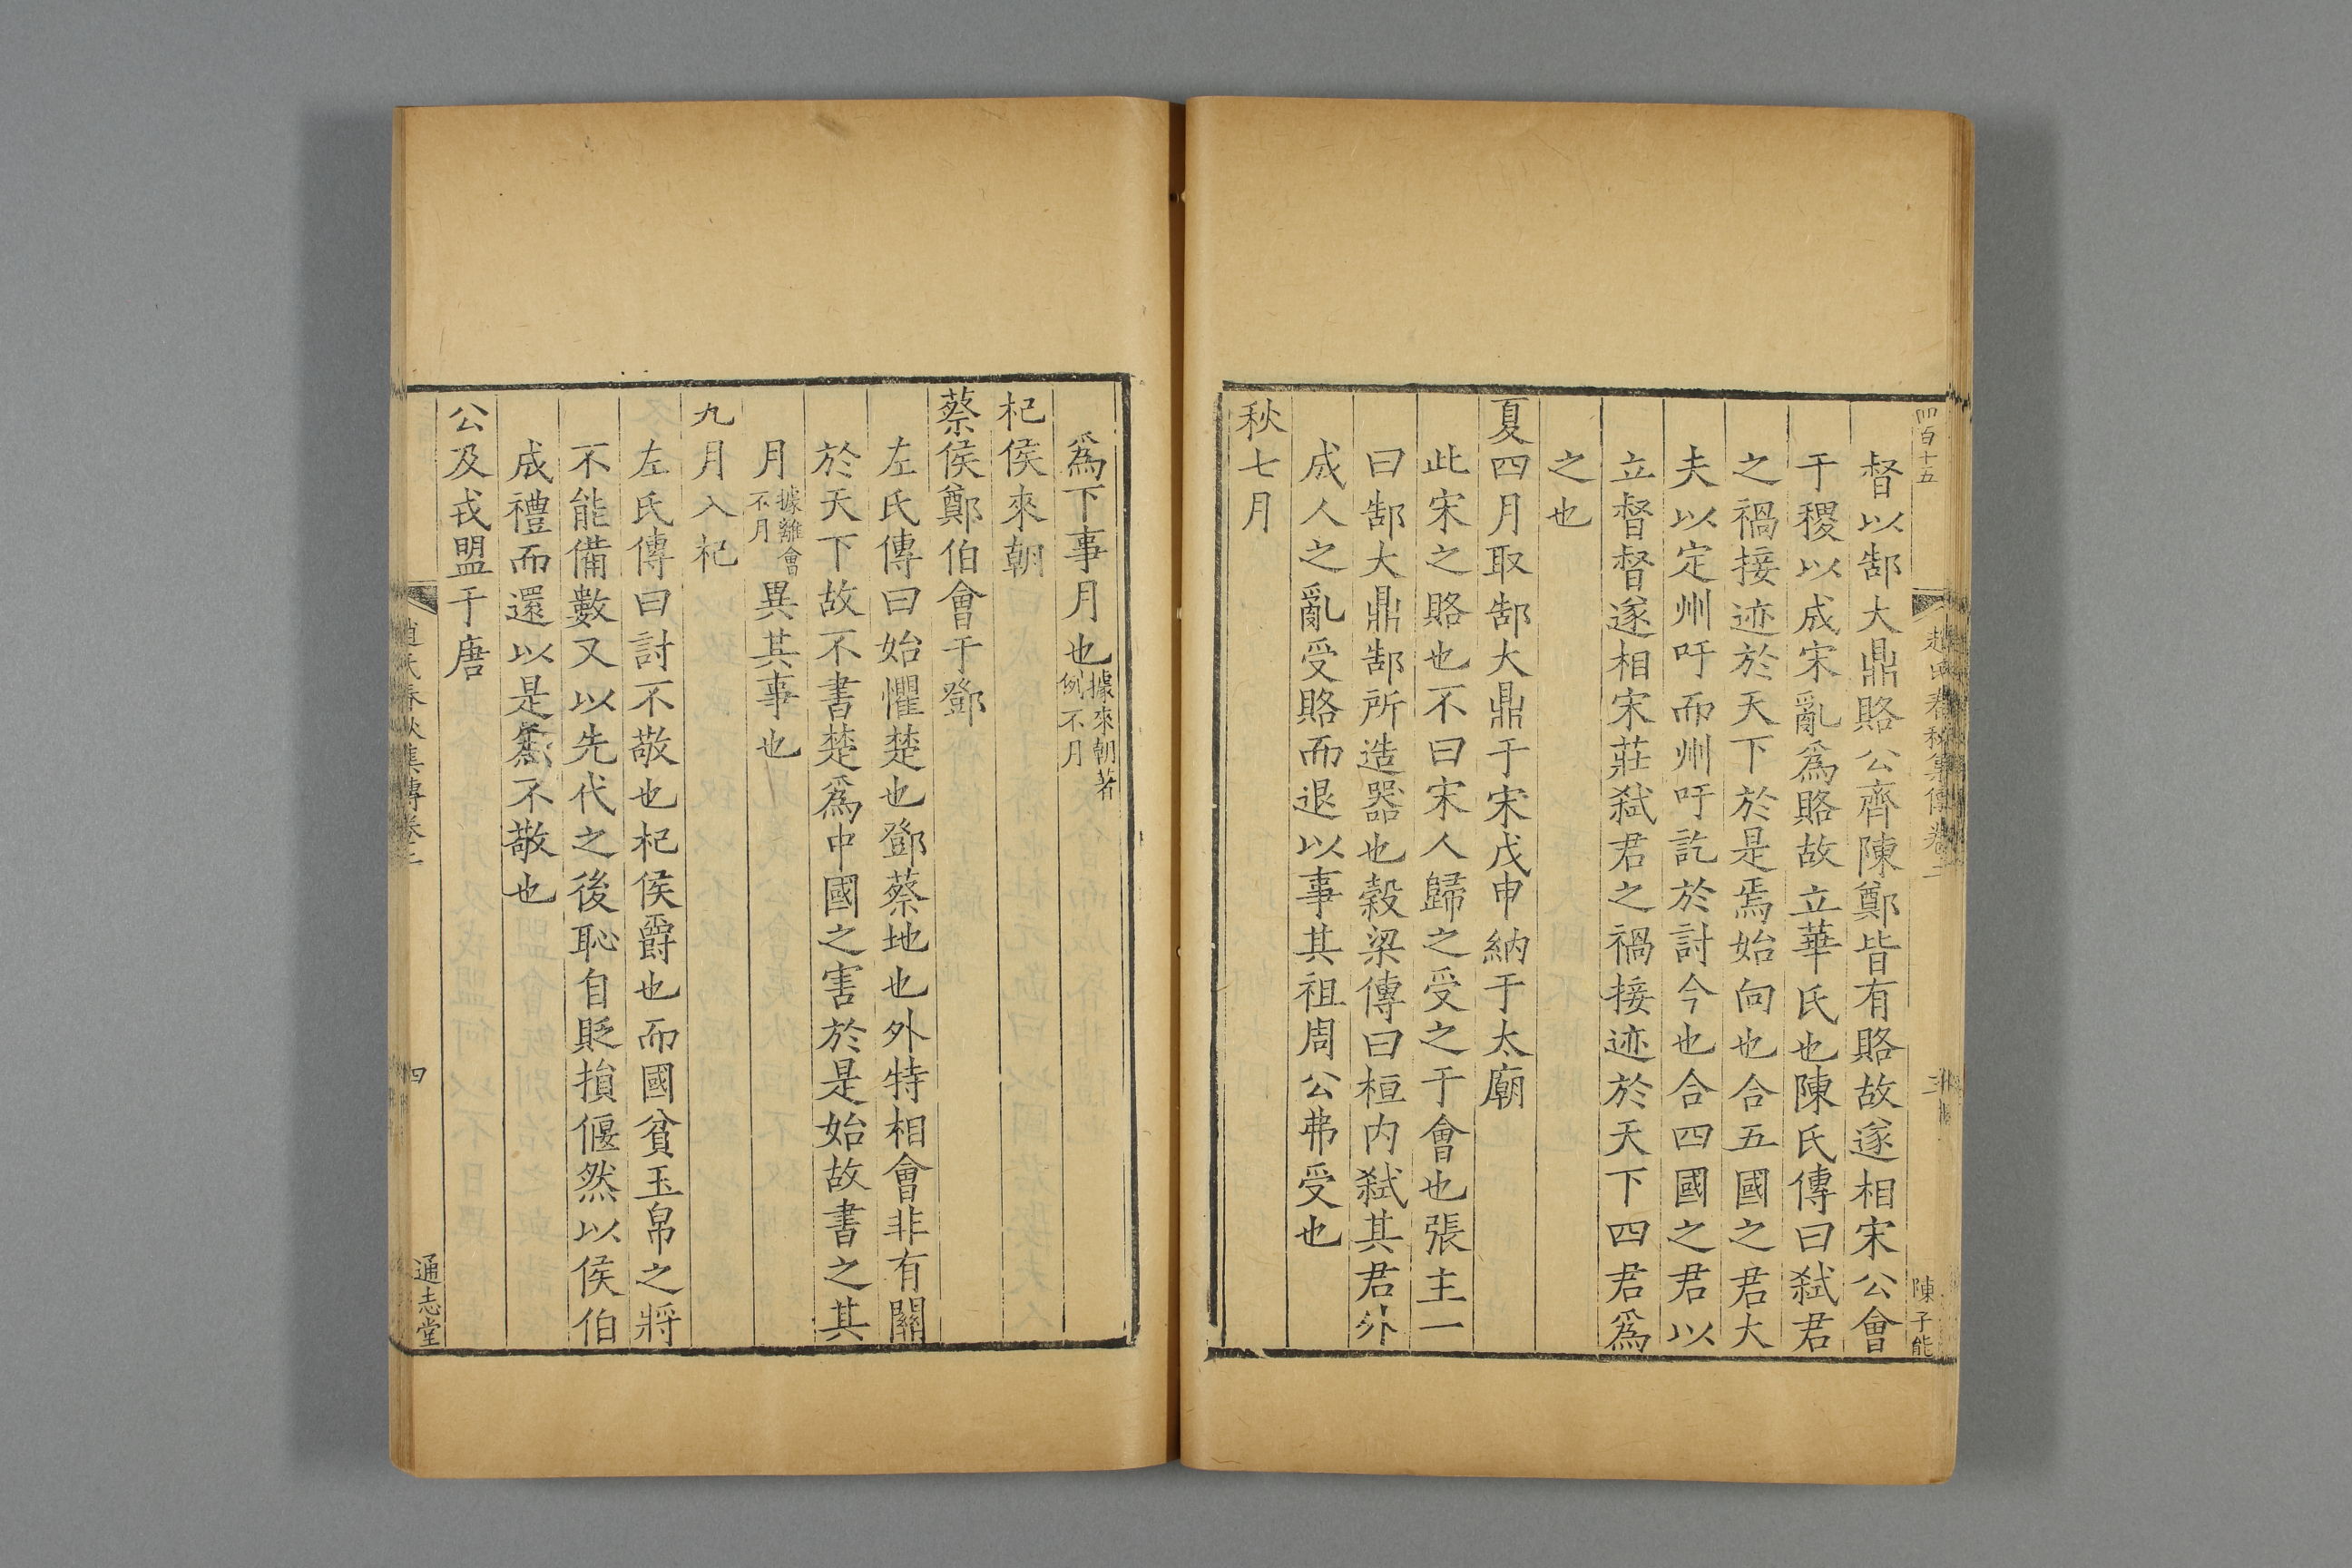 四百十五
趙氏春秋集傳卷二
三
陳子能
督以郜大鼎賂公齊陳鄭皆有賂故遂相宋公會
于稷以成宋亂爲賂故立華氏也陳氏傳曰弑君
之禍接迹於天下於是焉始向也合五國之君大
夫以定州吁而州吁訖於討今也合四國之君以
立督督遂相宋莊弑君之禍接迹於天下四君爲
之也
夏四月取郜大鼎于宋戊申納于太廟
此宋之賂也不曰宋人歸之受之于會也張主一
曰郜大鼎郜所造器也榖梁傳曰桓内弑其君外
成人之亂受賂而退以事其祖周公弗受也
秋七月
爲下事月也據來朝著
例不月
杞侯來朝
蔡侯鄭伯會于鄧
左氏傳曰始懼楚也鄧蔡地也外特相會非有關
於天下故不書楚爲中國之害於是始故書之其
月據離會
不月異其事也
九月入杞
左氏傳曰討不敬也杞侯爵也而國貧玉帛之將
不能備數又以先代之後恥自貶損偃然以侯伯
成禮而還以是爲不敬也
公及戎盟于唐
趙氏春秋集傳卷二
四
通志堂